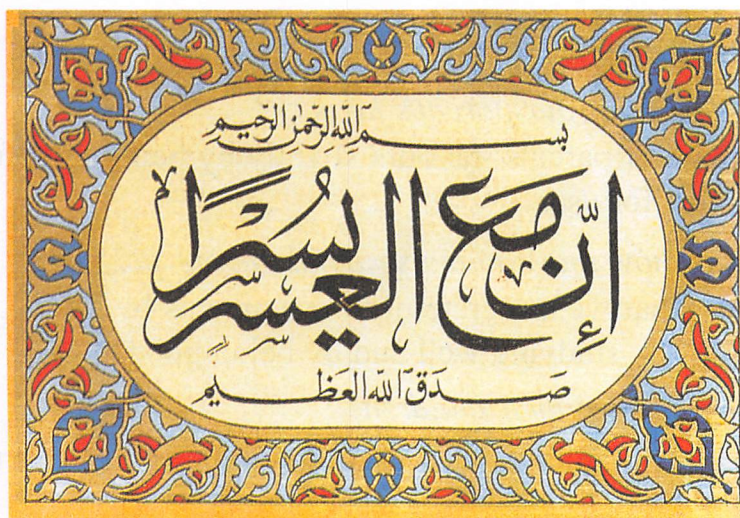 بسم الله الرحمن الرحيم
إنّ مع العسر يسرًا
صدق الله العظيم